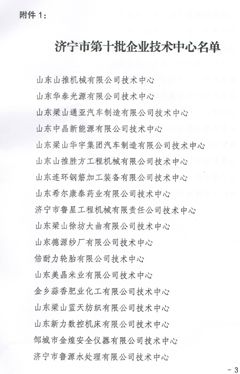 附件1：
济宁市第十批企业技术中心名单
山东山推机械有限公司技术中心
山东华泰光源有限公司技术中心
山东梁山通亚汽车制造有限公司技术中心
山东中晶新能源有限公司技术中心
山东梁山华宇集团汽车制造有限公司技术中心
山东山推胜方工程机械有限公司技术中心
山东连环钢筋加工装备有限公司技术中心
山东希尔康泰药业有限公司技术中心
济宁市鲁星工程机械有限责任公司技术中心
山东梁山徐坊大曲有限公司技术中心
山东德源纱厂有限公司技术中心
倍耐力轮胎有限公司技术中心
山东美晶米业有限公司技术中心
金乡蒜香肥业化工有限公司技术中心
山东梁山蓝天纺织有限公司技术中心
山东新力数控机床有限公司技术中心
邹城市金煌安全仪器有限公司技术中心
济宁市鲁源水处理有限公司技术中心
- 3